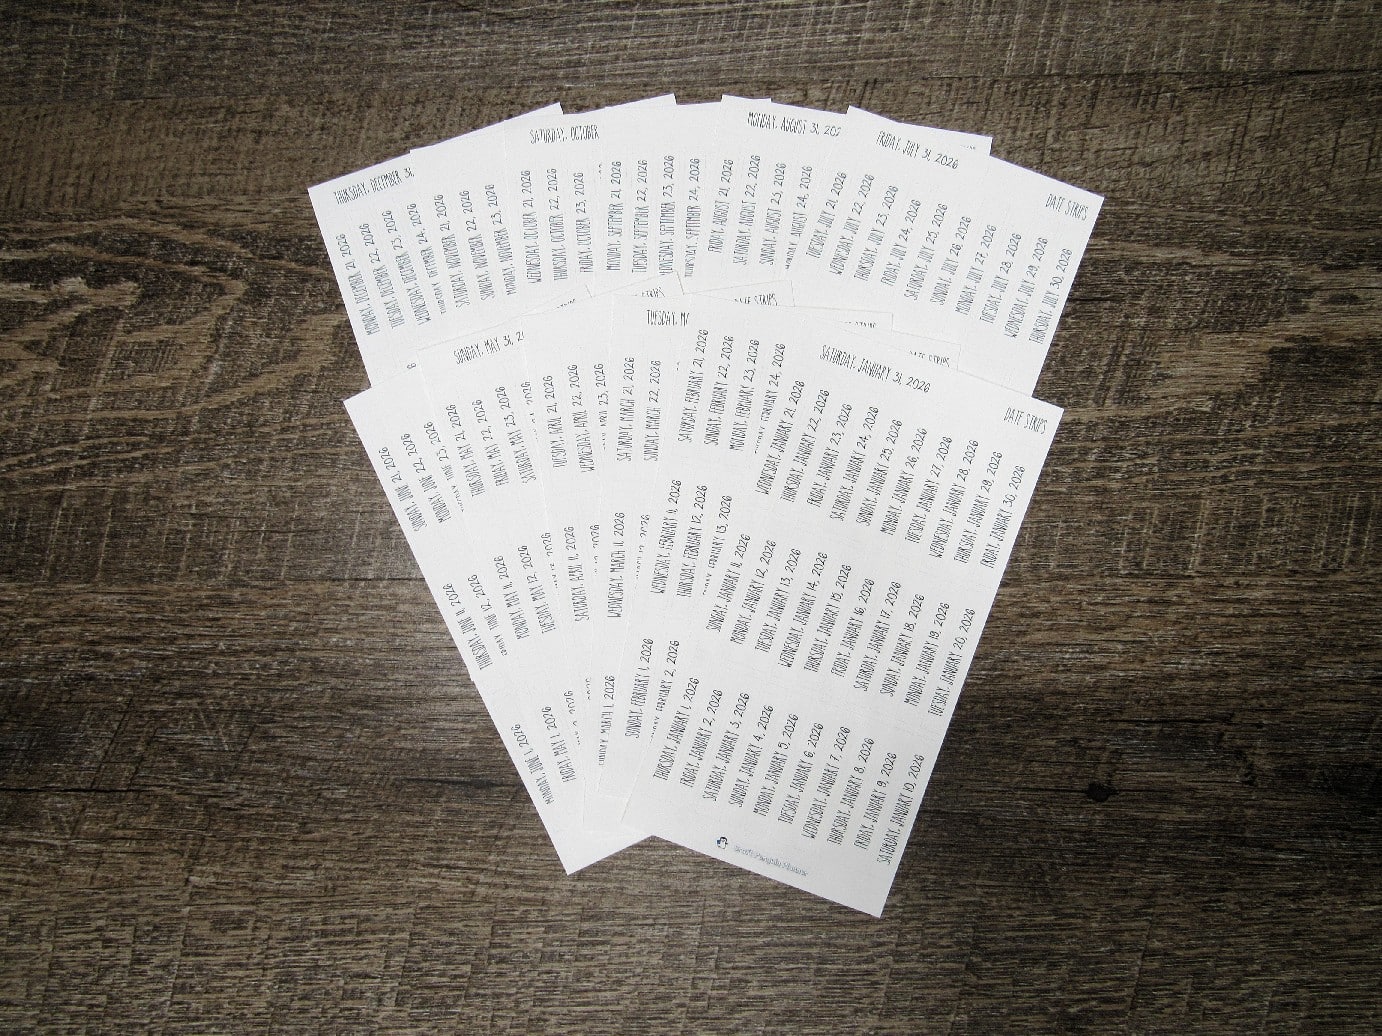 THURSDAY, DECEMBER 31,
MONDAY, DECEMBER 21, 2026
TUESDAY, DECEMBER 22, 2026
WEDNESDAY, DECEMBER 23, 2026
THURSDAY, DECEMBER 24, 2026
SATURDAY, NOVEMBER 21, 2026
SUNDAY, NOVEMBER 22, 2026
MONDAY, NOVEMBER 23, 2026
SATURDAY, OCTOBER
WEDNESDAY, OCTOBER 21, 2026
THURSDAY, OCTOBER 22, 2026
FRIDAY, OCTOBER 23, 2026
MONDAY, SEPTEMBER 21, 2026
TUESDAY, SEPTEMBER 22, 2026
WEDNESDAY, SEPTEMBER 23, 2026
THURSDAY, SEPTEMBER 24, 2026
MONDAY, AUGUST 31, 202
FRIDAY, AUGUST 21, 2026
SATURDAY, AUGUST 22, 2026
SUNDAY, AUGUST 23, 2026
MONDAY, AUGUST 24, 2026
FRIDAY, JULY 31, 2026
DATE STRIPS
TUESDAY, JULY 21, 2026
WEDNESDAY, JULY 22, 2026
THURSDAY, JULY 23, 2026
FRIDAY, JULY 24, 2026
SATURDAY, JULY 25, 2026
SUNDAY, JULY 26, 2026
MONDAY, JULY 27, 2026
TUESDAY, JULY 28, 2026
WEDNESDAY, JULY 29, 2026
THURSDAY, JULY 30, 2026
STRIPS
DATE STRIPS
DATE STRIPS
SUNDAY, JUNE 21, 2026
MONDAY, JUNE 22, 2026
THURSDAY, JUNE 11, 2026
FRIDAY, JUNE 12, 2026
MONDAY, JUNE 1, 2026
SUNDAY, MAY 31, 2
THURSDAY, MAY 21, 2026
FRIDAY, MAY 22, 2026
SATURDAY, MAY 23, 2026
MONDAY, MAY 11, 2026
TUESDAY, MAY 12, 2026
FRIDAY, MAY 1, 2026
TUESDAY, APRIL 21, 2026
WEDNESDAY, APRIL 22, 2026
SATURDAY, APRIL 11, 2026
TUESDAY, MA
SATURDAY, MARCH 21, 2026
SUNDAY, MARCH 22, 2026
WEDNESDAY, MARCH 11, 2026
SUNDAY, MARCH 1, 2026
SATURDAY, FEBRUARY 21, 2026
SUNDAY, FEBRUARY 22, 2026
MONDAY, FEBRUARY 23, 2026
TUESDAY, FEBRUARY 24, 2026
WEDNESDAY, FEBRUARY 11, 2026
THURSDAY, FEBRUARY 12, 2026
FRIDAY, FEBRUARY 13, 2026
SUNDAY, FEBRUARY 1, 2026
MONDAY, FEBRUARY 2, 2026
SATURDAY, JANUARY 31, 2026
DATE STRIPS
WEDNESDAY, JANUARY 21, 2026
THURSDAY, JANUARY 22, 2026
FRIDAY, JANUARY 23, 2026
SATURDAY, JANUARY 24, 2026
SUNDAY, JANUARY 25, 2026
MONDAY, JANUARY 26, 2026
TUESDAY, JANUARY 27, 2026
WEDNESDAY, JANUARY 28, 2026
THURSDAY, JANUARY 29, 2026
FRIDAY, JANUARY 30, 2026
SUNDAY, JANUARY 11, 2026
MONDAY, JANUARY 12, 2026
TUESDAY, JANUARY 13, 2026
WEDNESDAY, JANUARY 14, 2026
THURSDAY, JANUARY 15, 2026
FRIDAY, JANUARY 16, 2026
SATURDAY, JANUARY 17, 2026
SUNDAY, JANUARY 18, 2026
MONDAY, JANUARY 19, 2026
TUESDAY, JANUARY 20, 2026
THURSDAY, JANUARY 1, 2026
FRIDAY, JANUARY 2, 2026
SATURDAY, JANUARY 3, 2026
SUNDAY, JANUARY 4, 2026
MONDAY, JANUARY 5, 2026
TUESDAY, JANUARY 6, 2026
WEDNESDAY, JANUARY 7, 2026
THURSDAY, JANUARY 8, 2026
FRIDAY, JANUARY 9, 2026
SATURDAY, JANUARY 10, 2026